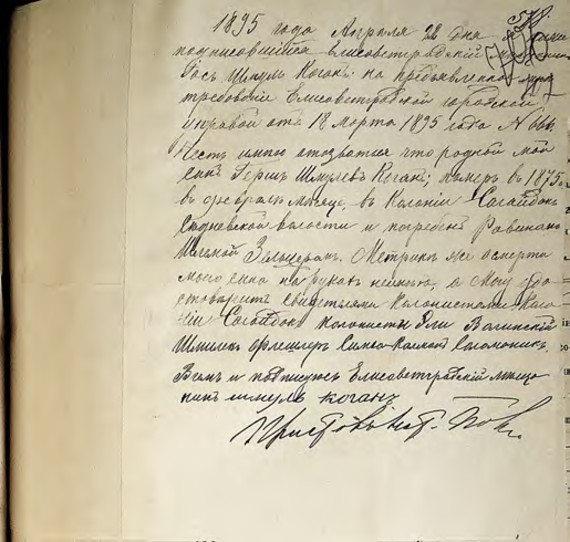 1895 года Апреля 22 дня я ниже
подписовшийся Елисоветградский мещанин
Іось Шмуль Коган: на предъявленное мне
требованіе Елисоветградской городской
управой отъ 18 Марта 1895 года №
Честь имею отозватся что родной мой
сынъ Гершъ Шмулевъ Коганъ; померъ въ 1875
въ феврале месяце, въ Колоніи Сагайдакъ
волости и погребенъ Равиномъ
Метрикъ же о смерти
моего сына на рукахъ неимею, а Могу удо
стоверить свидетелями Колонистами Коло
ніи Сагайдакъ Колонисты
Шмиликъ Флешлеръ
В чемъ и подписуюсь Елисоветградскій меща
нинъ шмуль коганъ